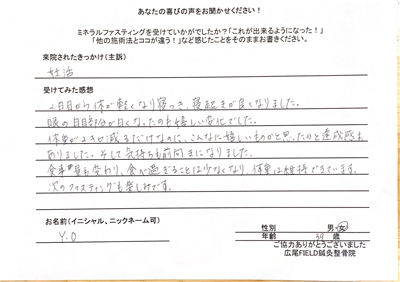 あなたの喜びの声をお聞かせください!
ミネラルファスティングを受けていかがでしたか?「これが出来るようになった!」
「他の施術法とココが違う!」など感じたことをそのままお書きください。
来院されたきっかけ(主訴)
妊活
受けてみた感想
2日目から体が軽くなり寝つき、寝起きが良くなりました。
眼の白目部分が白くなったのも嬉しい変化でした。
体重が2キロ減るだけなのに、こんなに嬉しいものかと思ったのと達成感も
ありました。そして気持ちも前向きになりました。
食事量も変わり、食べ過ぎることは少なくなり、体重は維持できています。
次のファスティングも楽しみです。
お名前(イニシャル、ニックネーム可)
Y.O
性別 男・女
年齢 歳
ご協力ありがとうございました
広尾FIELD鍼灸整骨院